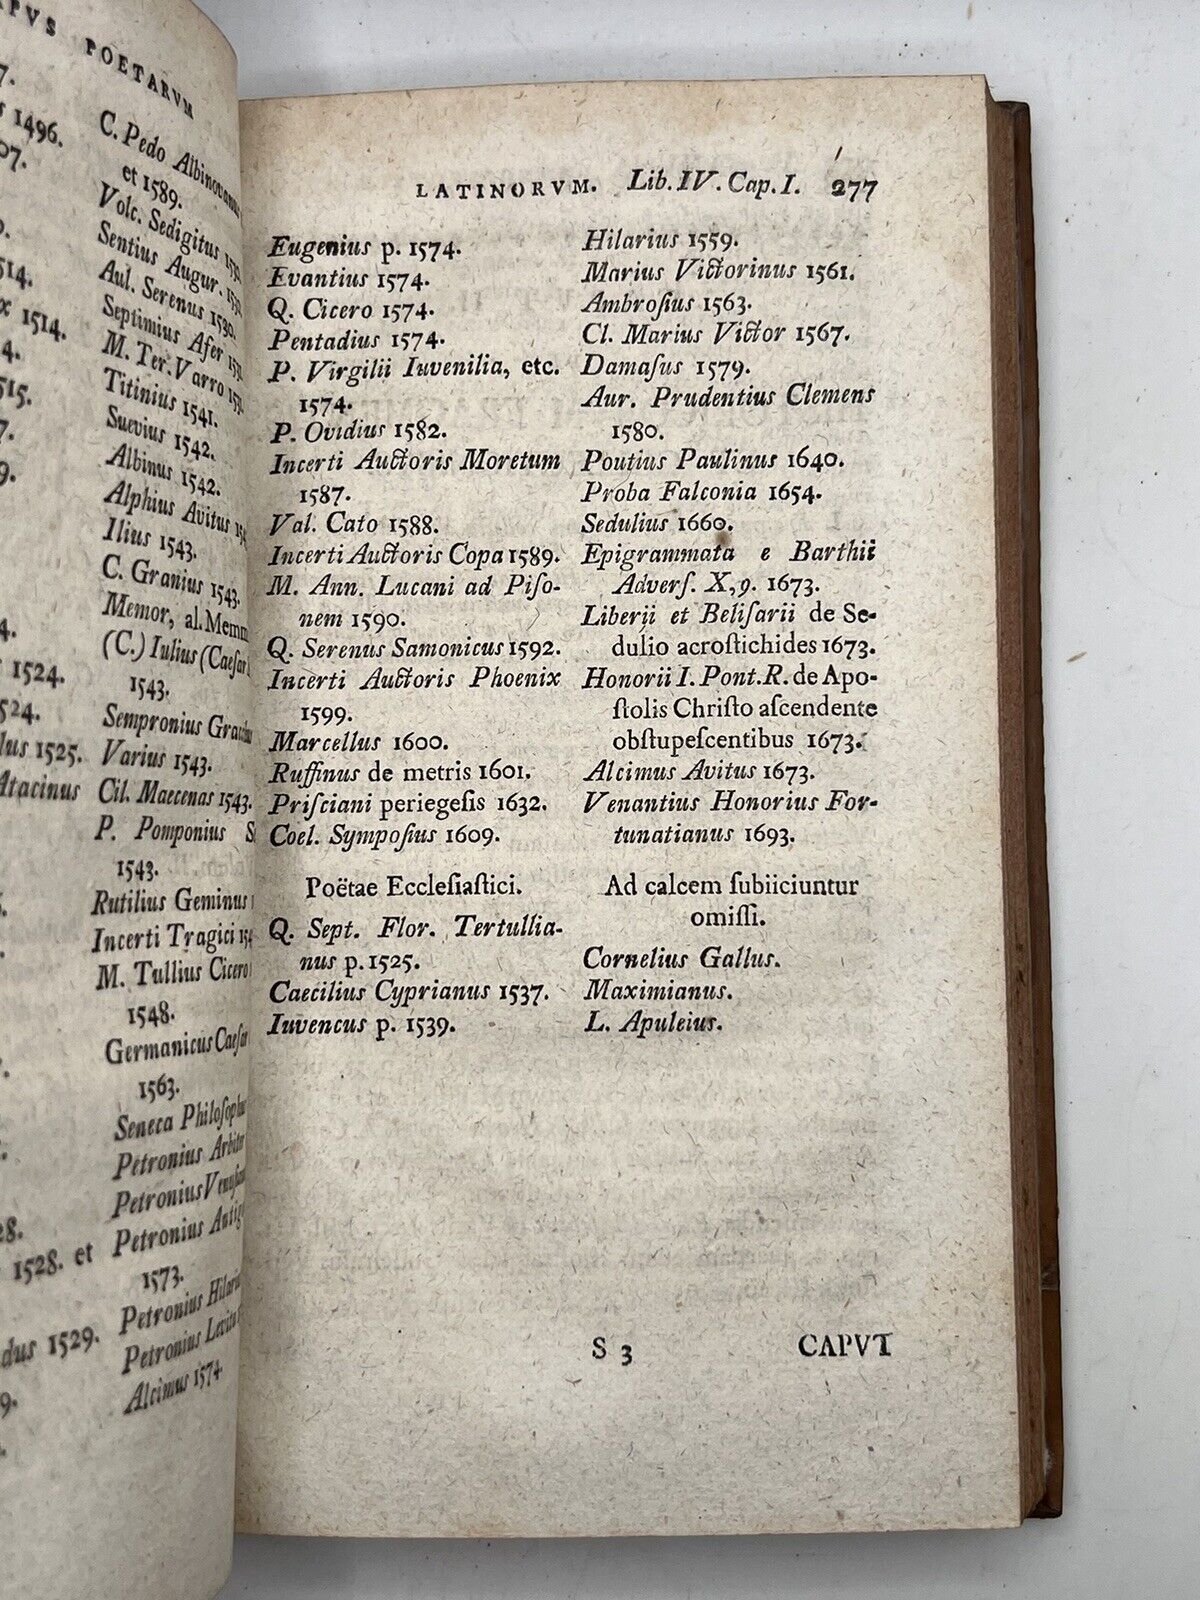 POETARVM
7.
1496.
07.
514.
1514.
4.
515.
7.
9.
4.
1524.
524.
1525.
Atacinus
28.
1528. et
dus 1529.
9.
C. Pedo Albinovanus
et 1589.
Volc. Sedigitus
Sentius Augur.
Aul. Serenus 1530.
Septimius Afer
M. Ter. Varro
Titinius 1541.
Suevius 1542.
Albinus 1542.
Alphius Avitus
Ilius 1543.
C. Granius 1543.
Memor, al. Memm
(C.) Iulius (Caeſar
1543.
Sempronius
Varius 1543.
Cil. Maecenas 1543.
P. Pomponius
1543.
Rutilius Geminus
Incerti Tragici
M. Tullius Cicero
1548.
Germanicus Caeſar
1563.
Seneca Philoſophus
Petronius Arbiter
Petronius
Petronius
1573.
Petronius
Petronius
Alcimus 1574.
LATINORVM. Lib. IV. Cap. I. 277
Eugenius p. 1574.
Evantius 1574.
Q. Cicero 1574.
Pentadius 1574.
P. Virgilii Iuvenilia, etc.
1574.
P. Ovidius 1582.
Incerti Auctoris Moretum
1587.
Val. Cato 1588.
Incerti Auctoris Copa 1589.
M. Ann. Lucani ad Piſo-
nem 1590.
Q. Serenus Samonicus 1592.
Incerti Auctoris Phoenix
1599.
Marcellus 1600.
Ruffinus de metris 1601.
Priſciani periegeſis 1632.
Coel. Sympoſius 1609.
Poëtae Eccleſiaſtici.
Q. Sept. Flor. Tertullia-
nus p. 1525.
Caecilius Cyprianus 1537.
Iuvencus p. 1539.
Hilarius 1559.
Marius Victorinus 1561.
Ambroſius 1563.
Cl. Marius Victor 1567.
Damaſus 1579.
Aur. Prudentius Clemens
1580.
Poutius Paulinus 1640.
Proba Falconia 1654.
Sedulius 1660.
Epigrammata e Barthii
Adverſ. X, 9. 1673.
Liberii et Beliſarii de Se-
dulio acroſtichides 1673.
Honorii I. Pont. R. de Apo-
ſtolis Chriſto aſcendente
obſtupeſcentibus 1673.
Alcimus Avitus 1673.
Venantius Honorius For-
tunatianus 1693.
Ad calcem ſubiiciuntur
omiſſi.
Cornelius Gallus.
Maximianus.
L. Apuleius.
S 3
CAPVT